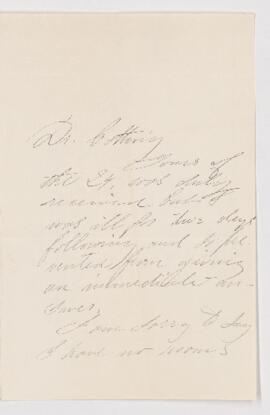 Dr. Cotting
Yours of
the 24, was duly
received but I
was ill for two days
following and so pre
vented from giving
an immediate an-
swer,
I am sorry to say
I have no rooms